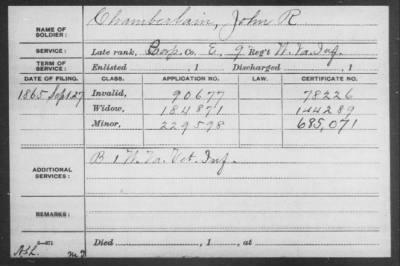 NAME OF SOLDIER: Chamberlain, John R
SERVICE: Late rank, Corp. Co. E, 9 Reg't W. Va. Inf.
TERM OF SERVICE: Enlisted , 1 Discharged , 1
DATE OF FILING. CLASS. APPLICATION NO. LAW. CERTIFICATE NO.
1865 Sept 27 Invalid, 90677 78226
Widow, 184871 144289
Minor, 229598 685,071
ADDITIONAL SERVICES: B 1 W. Va. Vet. Inf.
REMARKS:
Died , 1 , at